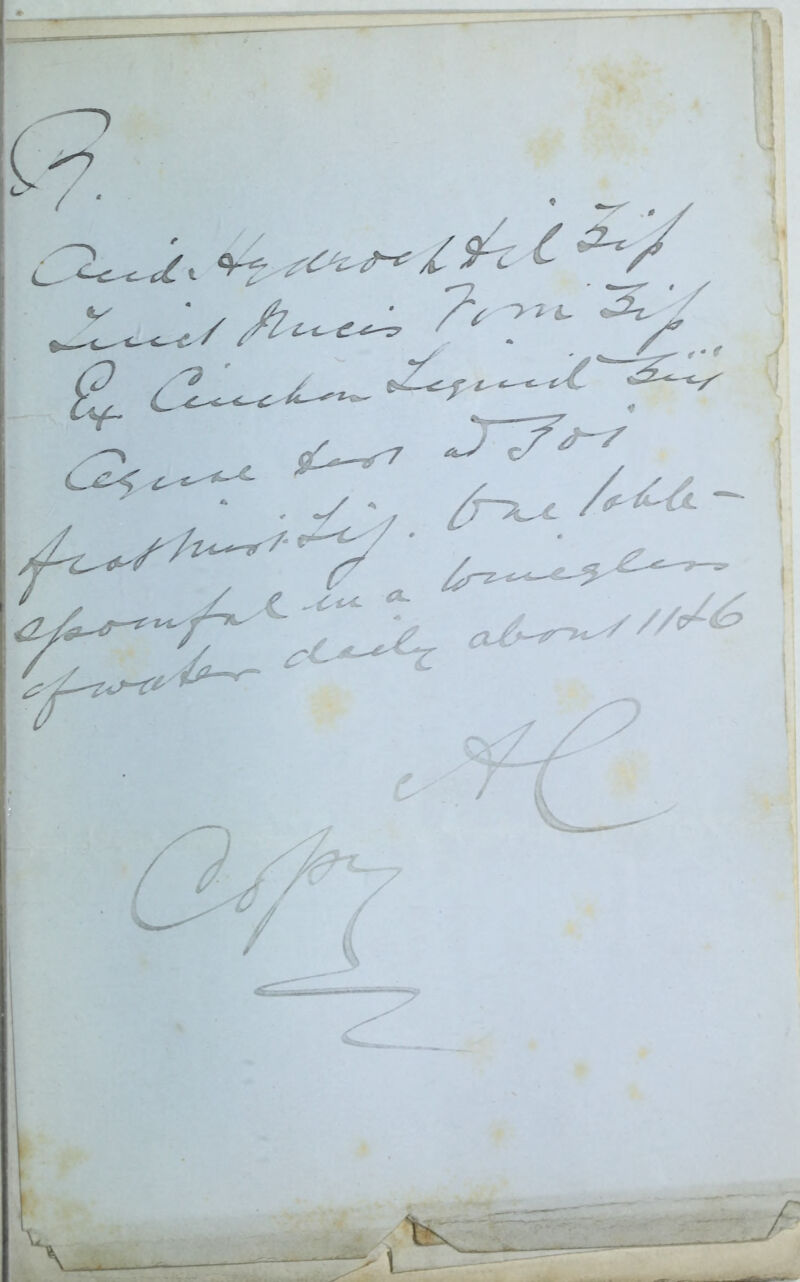 R.
Acid. Hydroch Dil ʒiſs
Tinct Nucis Vom ʒiſs
Ex Cinchon Liquid ʒiii
Aquae ad
fiat Mist. Sig. One table-
spoonful in a wineglass
of water daily about 11 & 6
AC
Copy